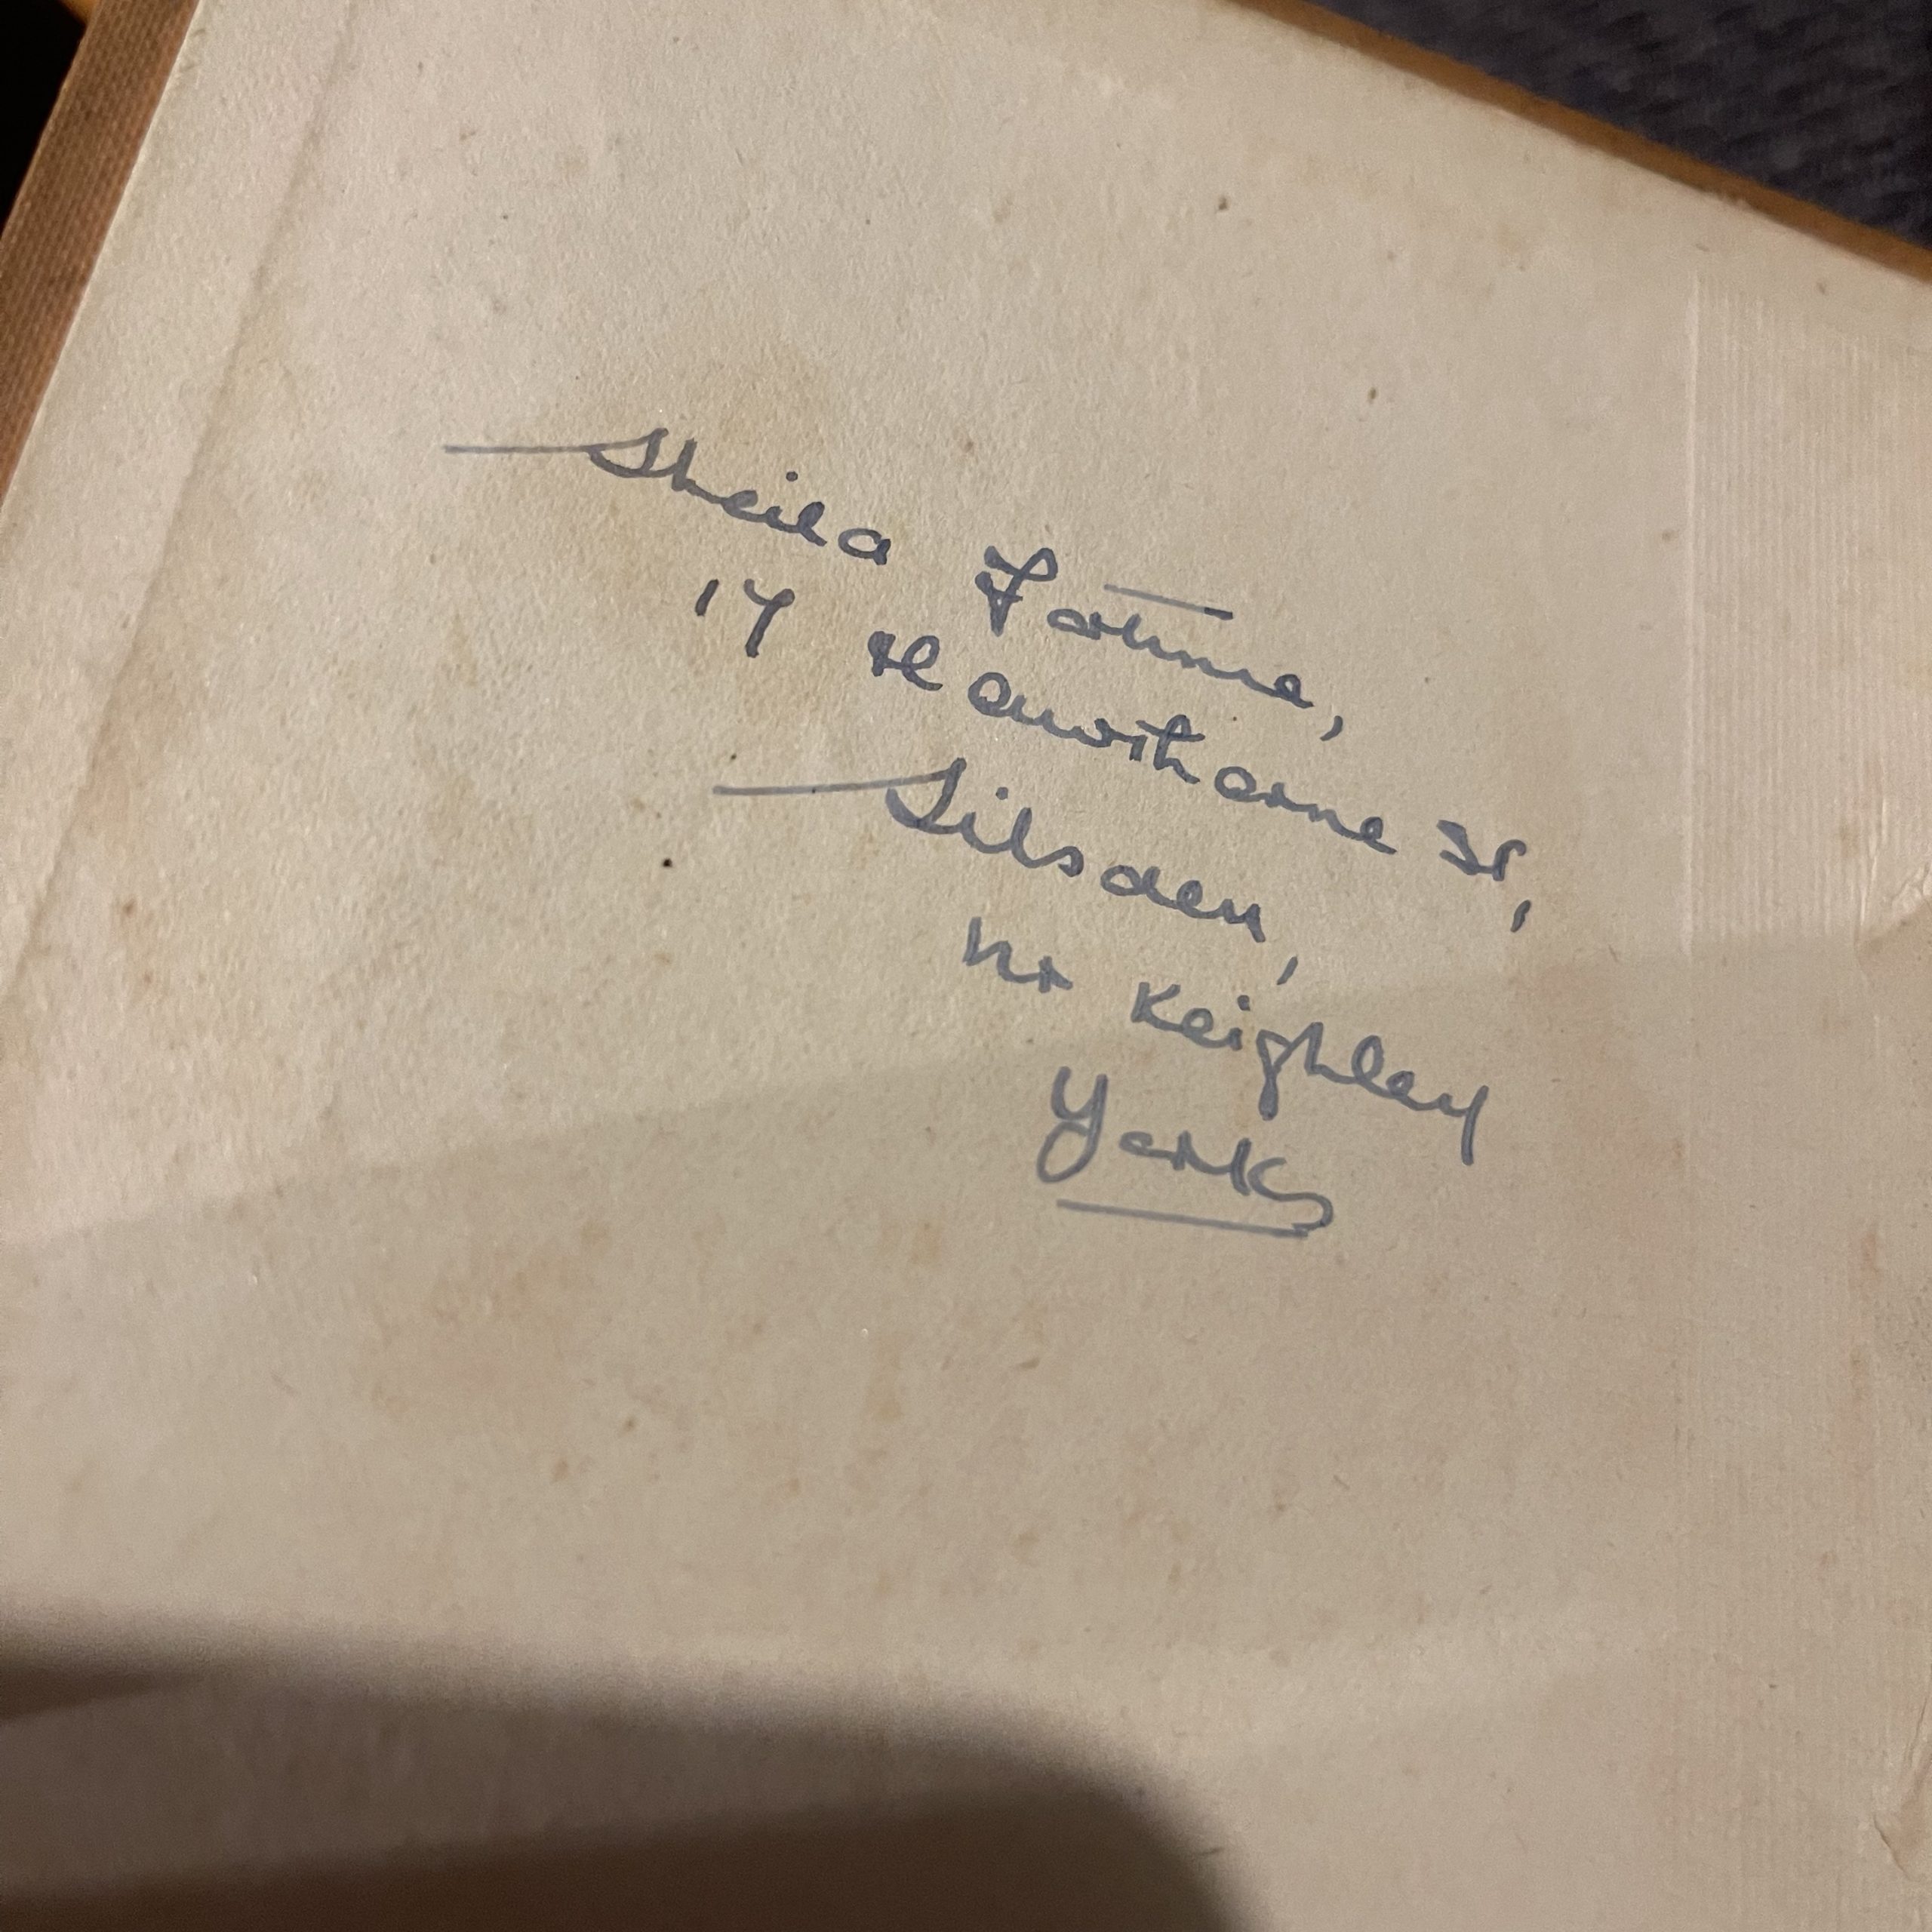 Sheila Fortune,
17 Hawthorne St,
Silsden,
Nr Keighley
Yorks